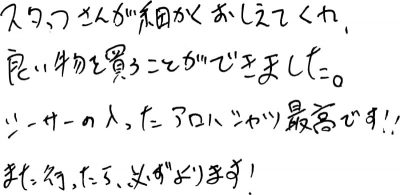 スタッフさんが細かくおしえてくれ、
良い物を買うことができました。
シーサーの入ったアロハシャツ最高です!!
また行ったら、必ずよります!